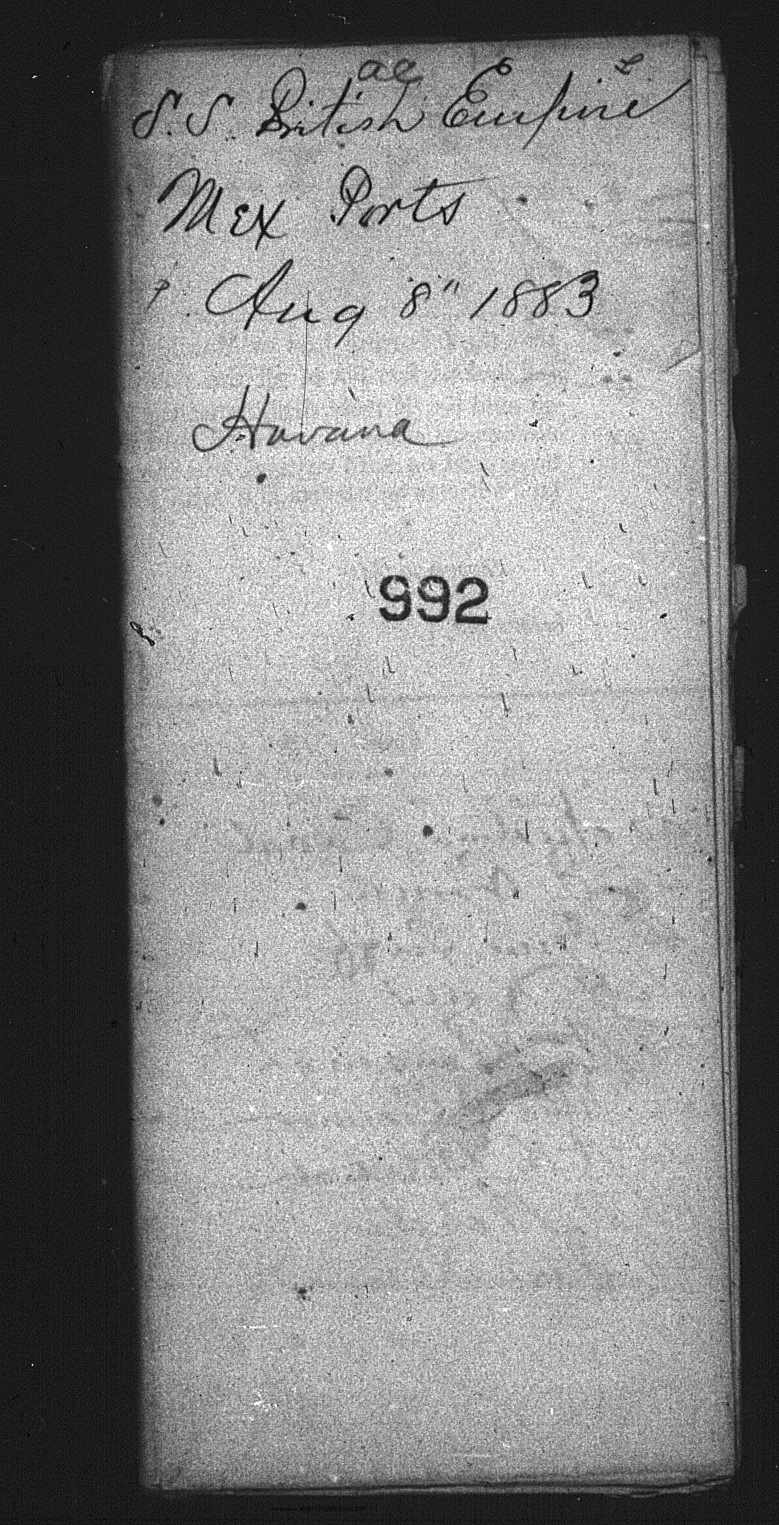 ae
S.S. British Empire
Mex Ports
Aug 8" 1883
Havana
992